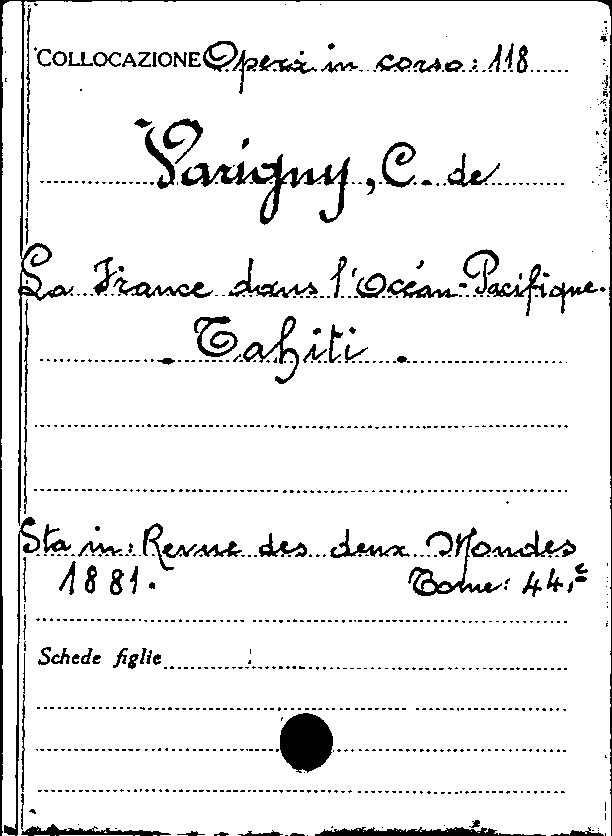 COLLOCAZIONE Opera in corso: 118
Varigny, C. de
La France dans l'Océan-Pacifique.
. Tahiti .
Sta in: Revue des deux Mondes
1881. Tome: 44.e
Schede figlie